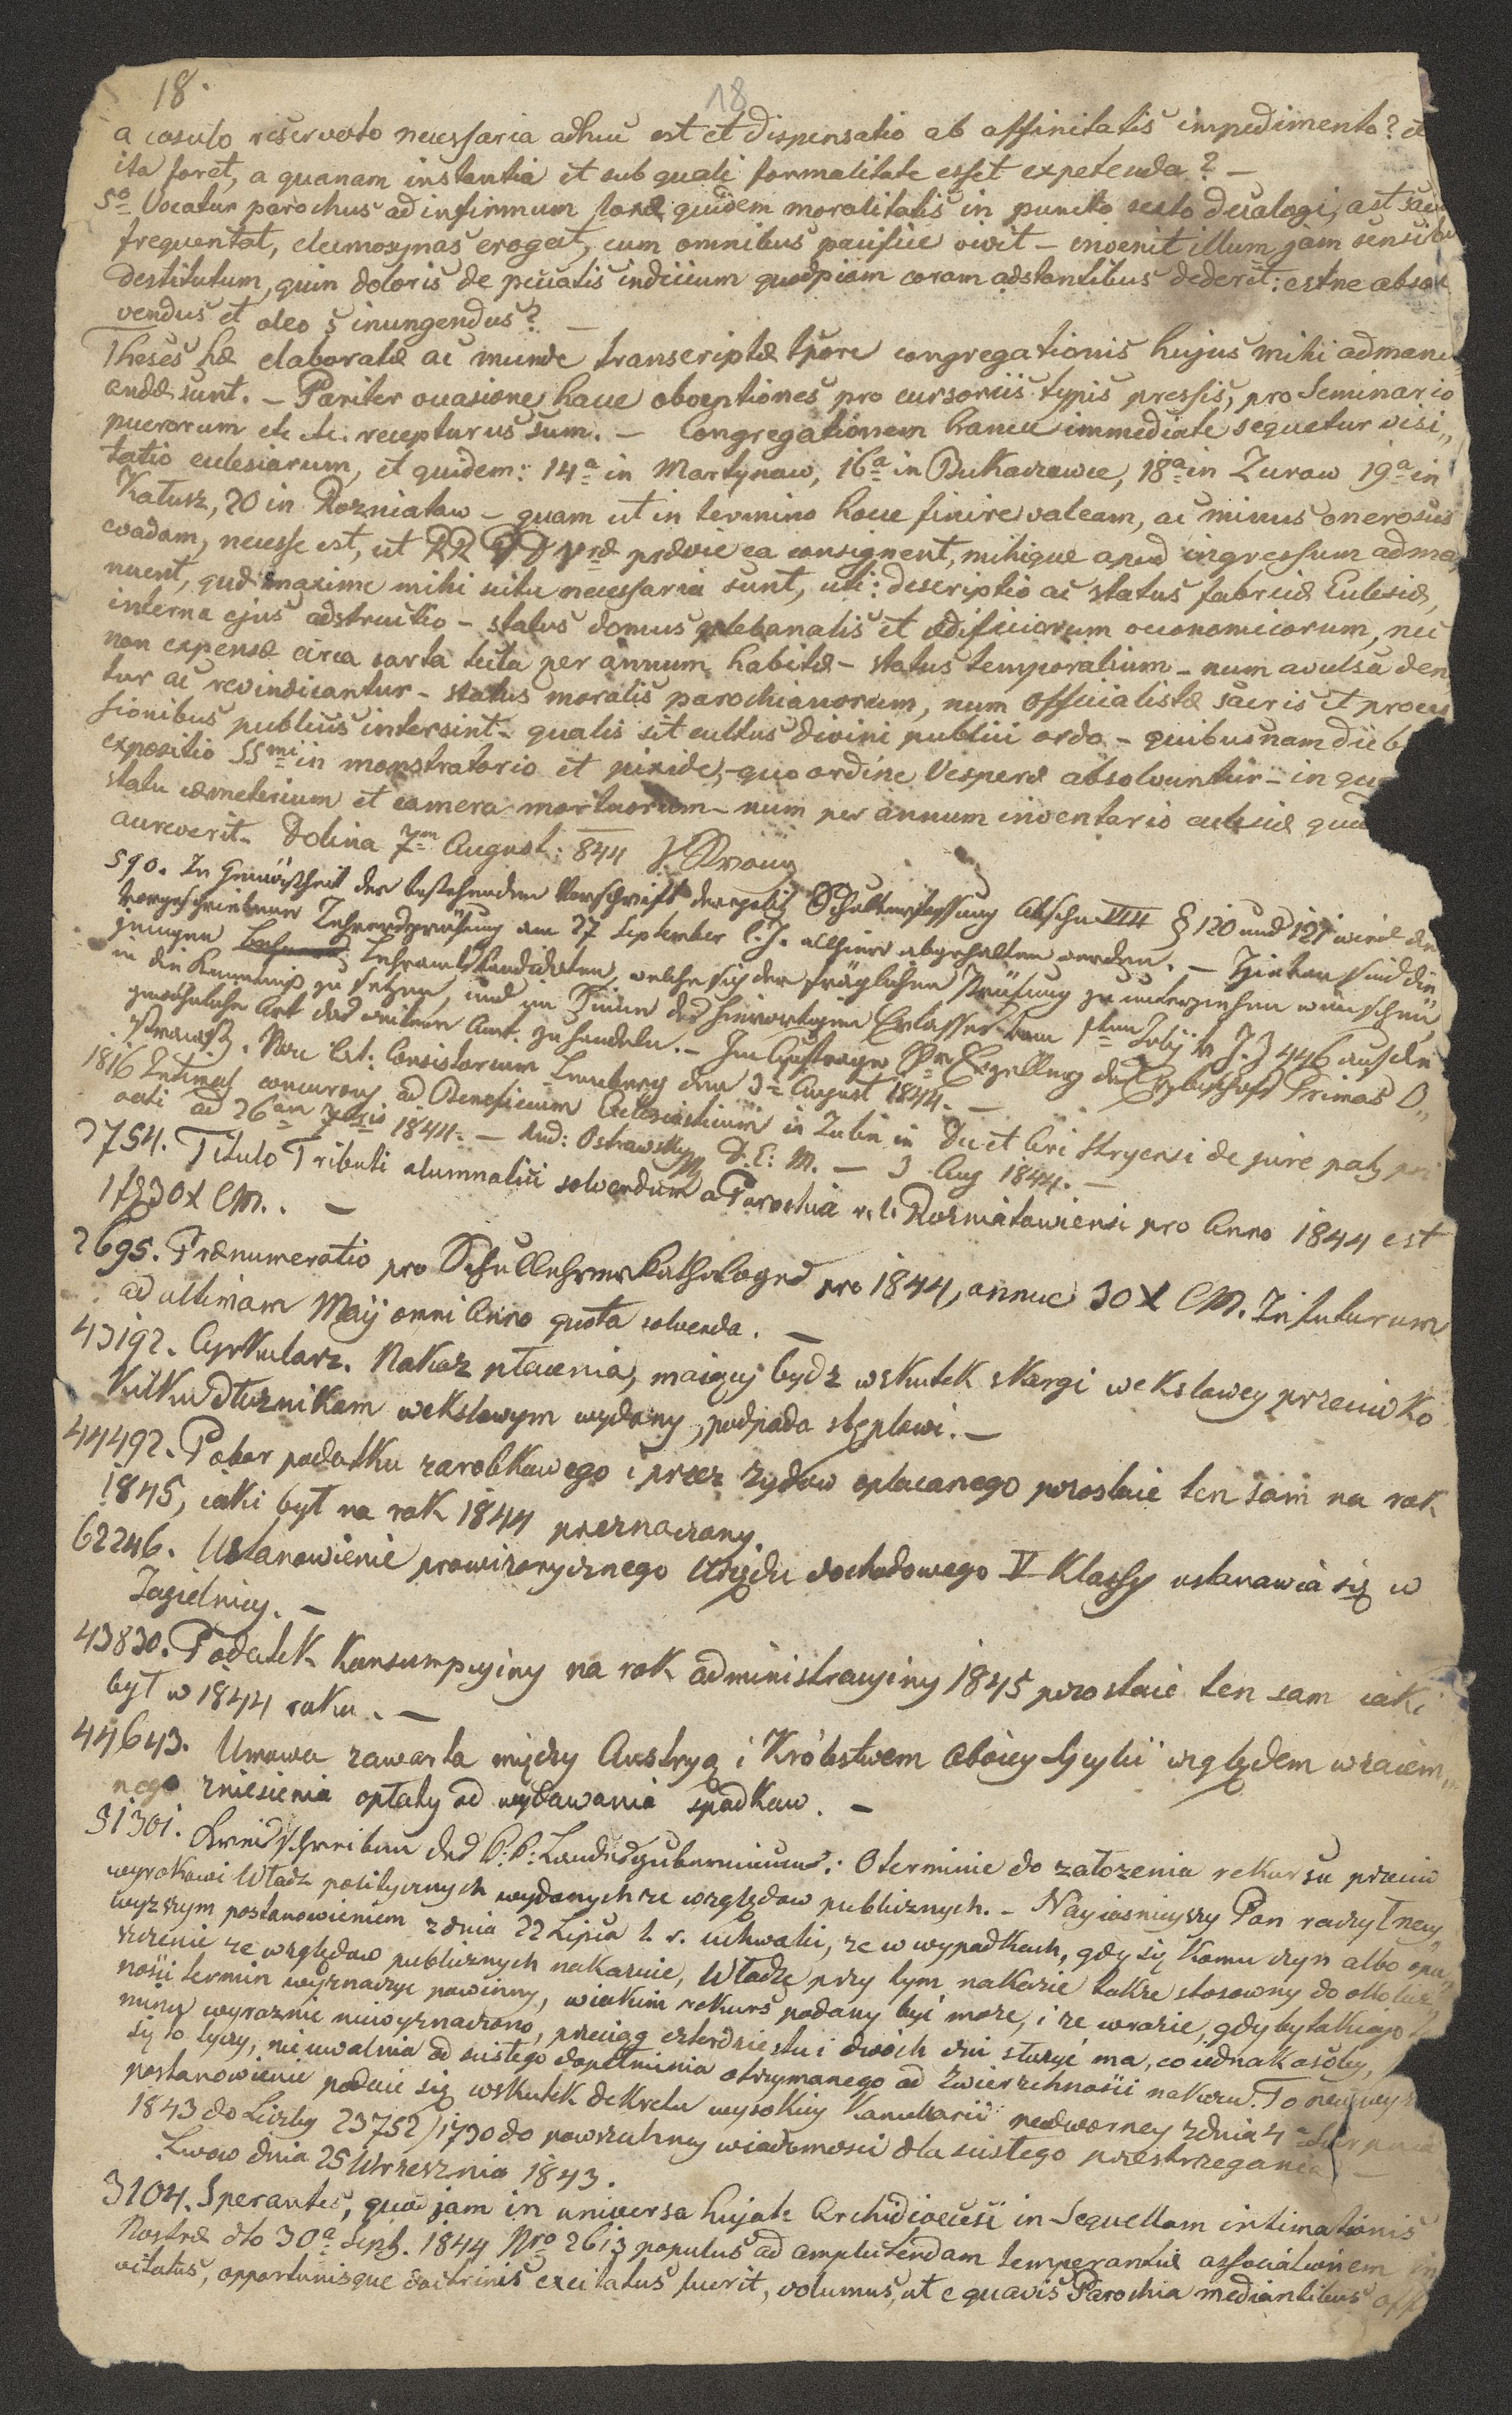 18.
18
a casulo reservato necessaria adhuc est et dispensatio ab affinitatis impedimento? et
ita foret, a quanam instantia et sub quali formalitate esset expetenda? –
5o Vocatur parochus ad infirmum laxae quidem moralitatis in puncto sexto decalogi, ast
frequentat, eleemosynas erogat, cum omnibus pacifice vivit – invenit illum jam sensibus
destitutum, quin doloris de peccatis indicium quodpiam coram adstantibus dederit: estne absol
vendus et oleo s inungendus? –
Theses hae elaboratae ac munde transcriptae tpore congregationis hujus mihi admanu
andae sunt. – Pariter occasione hacce oboeptiones pro cursoriis typis pressis, pro Seminario
puerorum etc etc. recepturus sum. – Congregationem hancce immediate sequetur visi„
tatio ecclesiarum, et quidem: 14a in Martynow, 16a in Bukaczowce, 18a in Zurow 19a in
Kałusz, 20 in Rozniatow – quam ut in termino hocce finire valeam, ac minus onerosus
evadam, necesse est, ut RR DD Vrae praevie ea consignent, mihique apud ingressum adma
nuent, quae maxime mihi scitu necessaria sunt, uti: descriptio ac status fabricae Ecclesiae,
interna ejus adstructio – status domus plebanalis et aedificiorum oeconomicorum, nec
non expensae circa sarta tecta per annum habitae – status temporalium – num avulsa den
tur ac revindicantur – status moralis parochianorum, num officialistae sacris et proces
sionibus publicis intersint – qualis sit cultus divini publici ordo – quibusnam dieb
expositio SSmi in monstratorio et pixide, – quo ordine Vesperae absolvuntur – in quo
statu coemeterium et camera mortuorum – num per annum inventario ecclesiae quid
accreverit – Dolina 7m August: 844
590. In Gemäßheit der bestehenden Vorschrift der polit Schulverfassung Abschn VIII § 120 und 121 wird die
vorgeschriebene Lehrerprüfung am 27 September l. J. allhier abgehalten werden. – Hievon sind die
jenigen Lehramtskandidaten, welche sich der fräglichen Prüfung zu unterziehen wünschen,
in die Kenntniß zu setzen, und im Sinne des hierortigen Erlasses vom 1ten July l. J. Z 446 auf die
gewöhnliche Art das weitere Amt. zu handeln. – Im Auftrage Sr Exzellenz des Erzbischofs Primas
Vom lat: Consistorium Lemberg den 3n August 1844. –
1816 Intimat concursus ad Beneficium Ecclesiasticum in Lubin in Du et Cri Stryensi de jure patz pri
vati ad 26am 7bris 1844. – And: Ostrawsky D. E: M. – 3 Aug 1844. –
2754. Titulo Tributi alumnatici solvendum a Parochia r. l. Rozniatowiensi pro Anno 1844 est
1f 30x CM. –
2695. Praenumeratio pro Schullehrer Kathaloges pro 1844, annue 30 x CM. In futurum
ad ultimam Maij omni Anno quota solvenda. –
43192. Cyrkularz. Nakaz płacenia, maiący bydz wskutek skargi wekslowey przeciwko
kilku dłużnikom wekslowym wydany, podpada stęplowi. –
44492. Pobor podatku zarobkowego i przez żydow opłacanego pozostaie ten sam na rok
1845, iaki był na rok 1844 przeznaczony.
62246. Ustanowienie prowizorycznego Urzędu dochodowego V Klassy ustanawia się w
Jagielnicy. –
43830. Podatek konsumpcyiny na rok administracyiny 1845 pozostaie ten sam iaki
był w 1844 roku. –
44643. Umowa zawarta między Austryą i Królestwem oboiey Sycylii względem wzaiem„
nego zniesienia opłaty od wydawania spadkow. –
31301. Kreisschreiben des k. k. Landesguberniums: O terminie do założenia rekursu przeciw
wyrokowi Władz politycznych wydanych ze względow publicznych. – Nayiasnieyszy Pan raczył nay„
wyższym postanowieniem z dnia 22 Lipca b. r. uchwalić, że w wypadkach, gdy się komu czyn albo opu„
szczenie ze względow publicznych nakazuie, Władze przy tym nakazie także stosowny do okolicz
ności termin wyznaczyć powinny, wiakim rekurs podany być może, i że wrazie, gdyby takiego
minu wyraznie niewyznaczono, przeciąg czterdziestu i dwoch dni służyć ma, co iednak osoby,
się to tyczy, nieuwalnia od scisłego dopełnienia otrzymanego od Zwierzchności nakazu. To naywyż
postanowienie podaie się wskutek dekretu wysokiey Kancellarii nadworney z dnia 4 Sierpnia
1843 do Liczby 23752/1730 do powszechney wiadomosci dla scisłego przestrzegania –
Lwow dnia 25 Wrzesznia 1843.
3104. Sperantes, quod jam in universa hujate Archidioecesi in Sequellam intimationis
Nostrae dto 30a Sept. 1844 Nro 2613 populus ad amplectendam temperantiae associationem in
vitatus, opportunisque doctrinis excitatus fuerit, volumus, ut e quavis Parochia mediantibus off